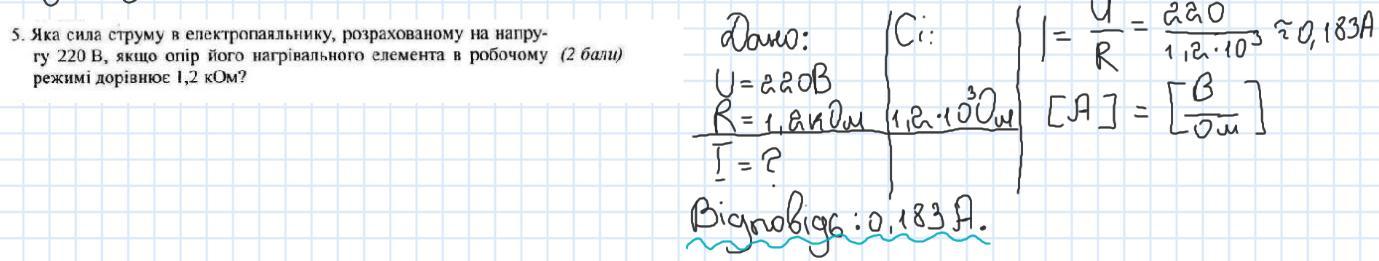 5. Яка сила струму в електропаяльнику, розрахованому на напру-
гу 220 В, якщо опір його нагрівального елемента в робочому (2 бали)
режимі дорівнює 1,2 кОм?
Дано:
U = 220В
R = 1,2кОм
I = ?
Сі:
1,2·10³Ом
I = U/R = 220/1,2·10³ ≈ 0,183А
[А] = [В/Ом]
Відповідь: 0,183А.